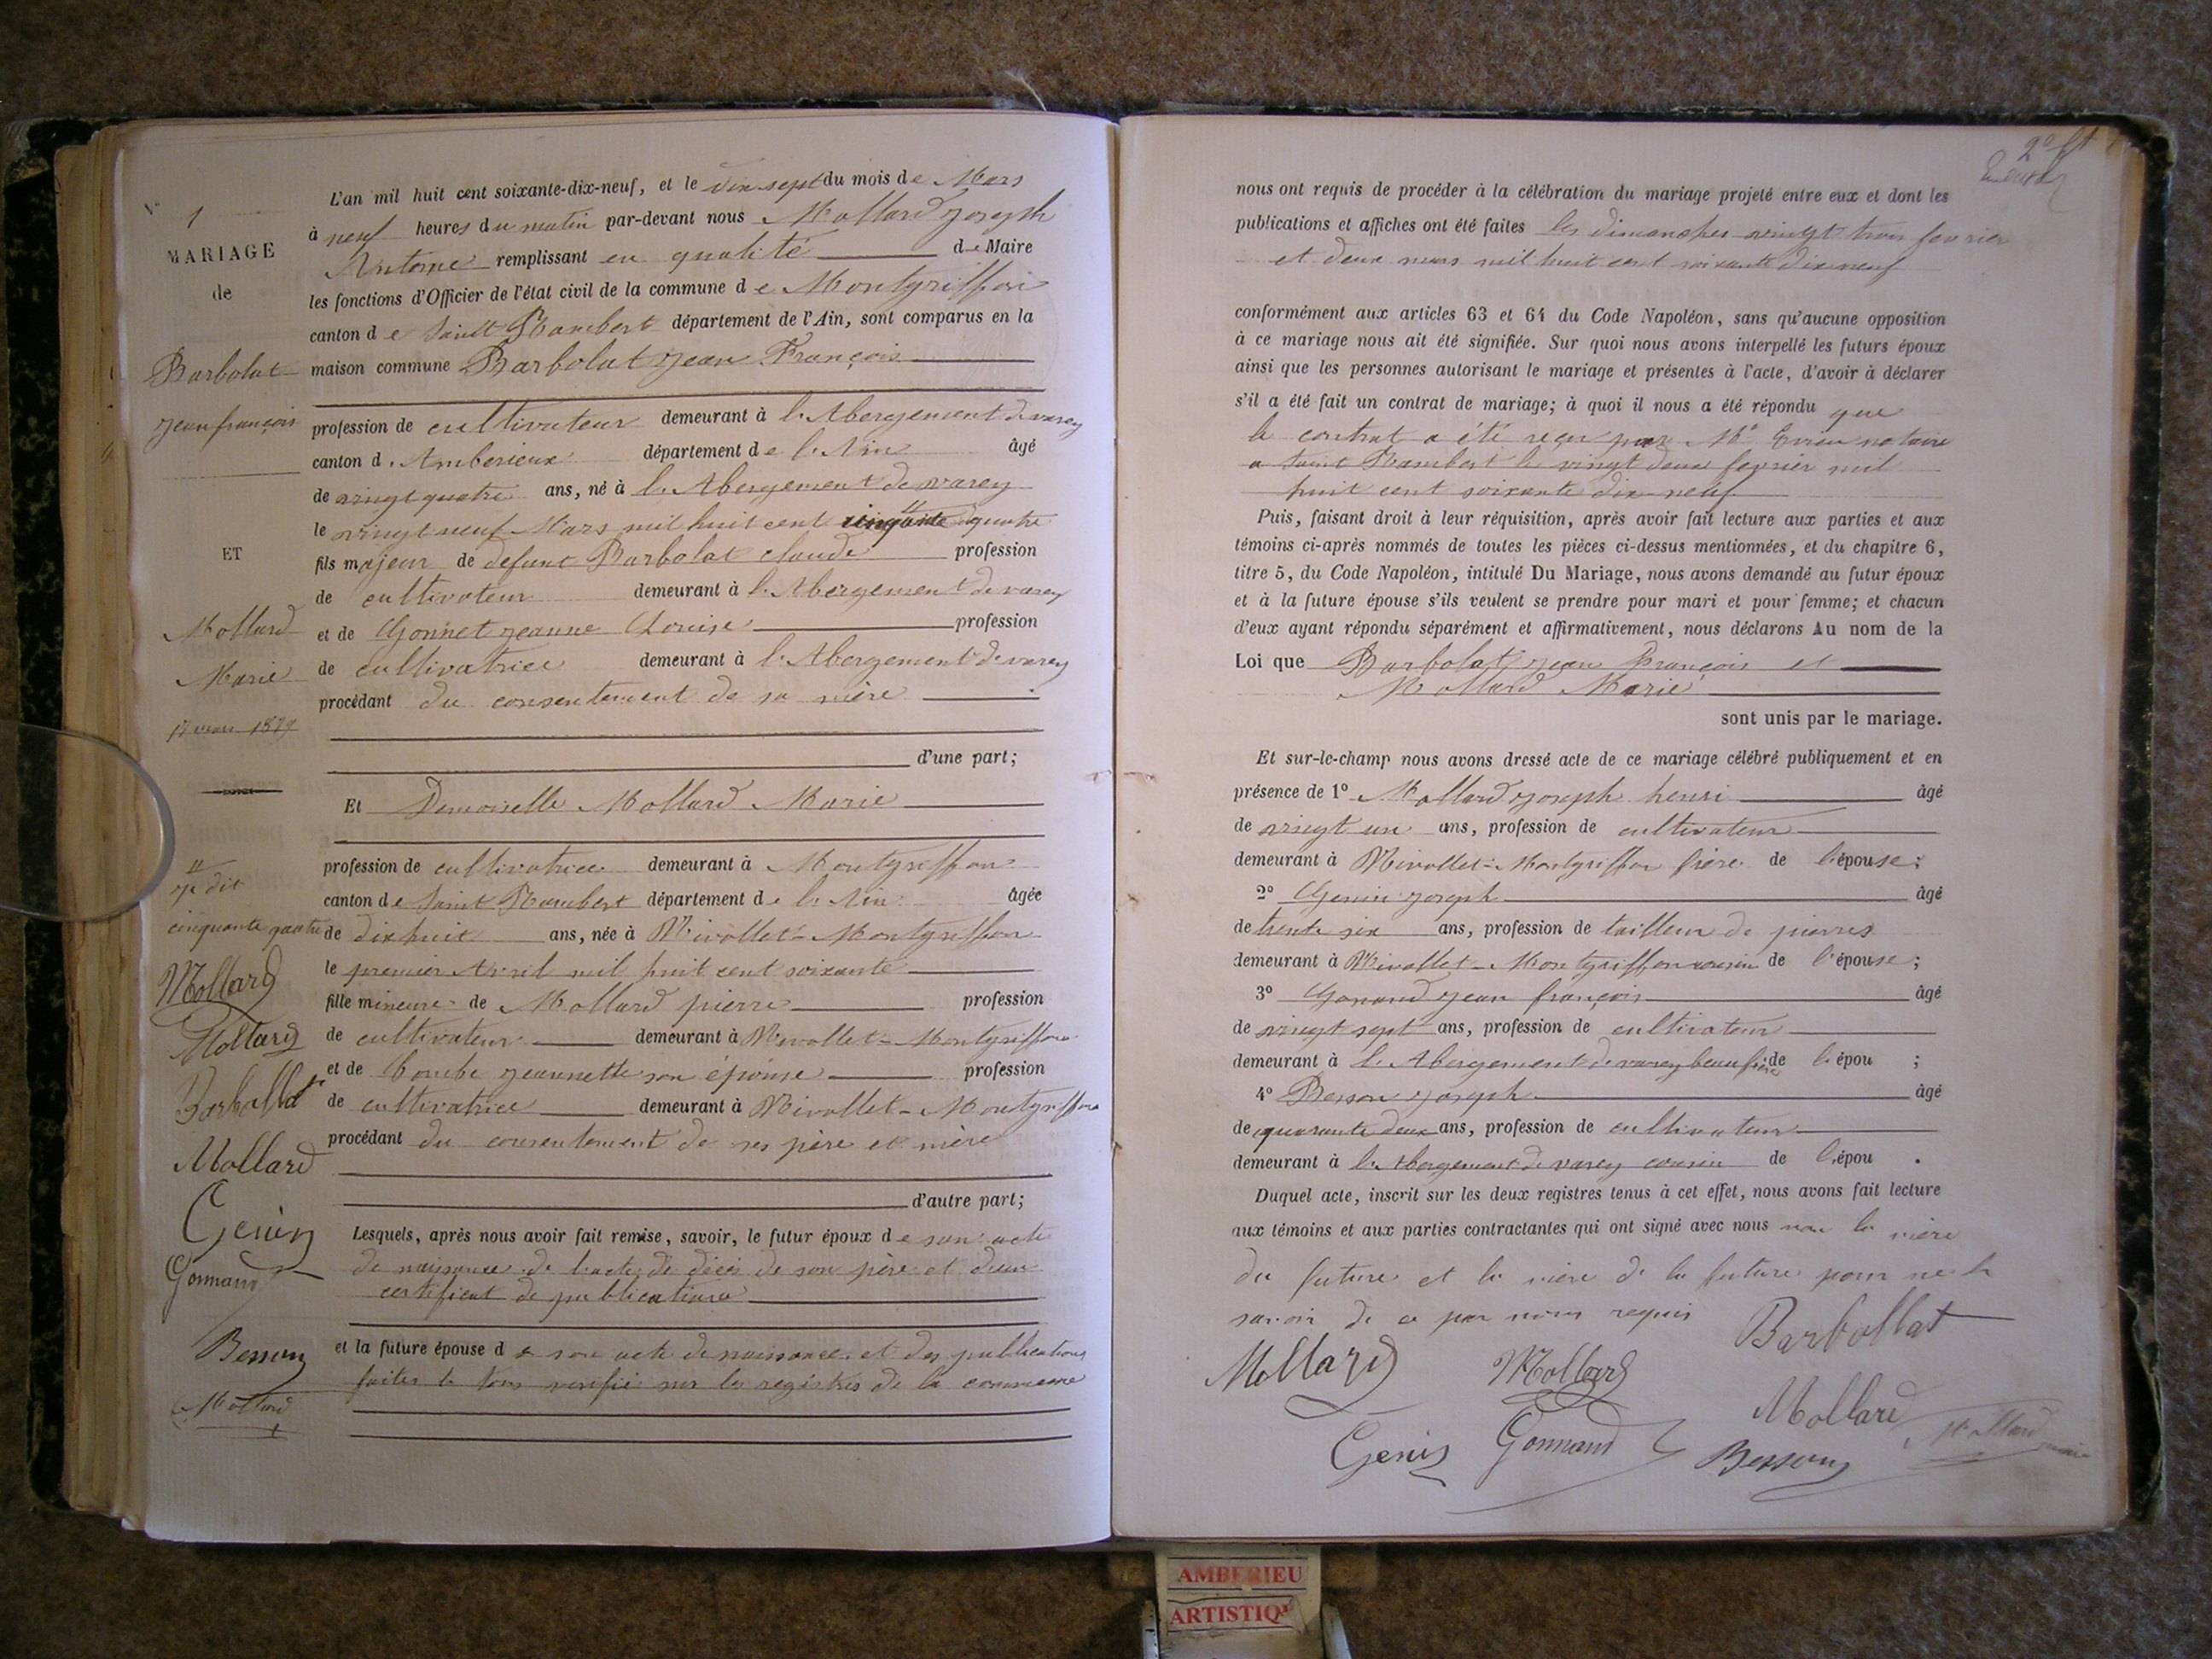 N° 1
MARIAGE
de
Barbolat
jean françois
ET
Mollard
Marie
17 mars 1879
je dit
cinquante quatre
Mollard
Mollard
Barbollat
Mollard
Genin
Gonnand
Besson
Mollard
L'an mil huit cent soixante-dix-neuf, et le dix sept du mois de Mars
à neuf heures du matin par-devant nous Mollard Joseph
Antoine remplissant en qualité de Maire
les fonctions d'Officier de l'état civil de la commune de Montgriffon
canton de Saint Rambert département de l'Ain, sont comparus en la
maison commune Barbolat Jean François
profession de cultivateur demeurant à l'Abergement de varey
canton d'Ambérieux département de l'Ain âgé
de vingt quatre ans, né à l'Abergement de varey
le vingt neuf Mars mil huit cent cinquante quatre
fils majeur de defunt Barbolat claude profession
de cultivateur demeurant à l'Abergement de varey
et de Gonnet jeanne Louise profession
de cultivatrice demeurant à l'Abergement de varey
procédant du consentement de sa mère
d'une part;
Et Demoiselle Mollard Marie
profession de cultivatrice demeurant à Montgriffon
canton de Saint Rambert département de l'Ain âgée
de dix huit ans, née à Nivollet-Montgriffon
le premier Avril mil huit cent soixante
fille mineure de Mollard pierre profession
de cultivateur demeurant à Nivollet-Montgriffon
et de Combe jeannette son épouse profession
de cultivatrice demeurant à Nivollet-Montgriffon
procédant du consentement de ses père et mère
d'autre part;
Lesquels, après nous avoir fait remise, savoir, le futur époux de son acte
de naissance de l'acte de décès de son père et d'un
certificat de publications
et la future épouse d son acte de naissance et des publications
faites le tous verifié sur les registres de la commune
nous ont requis de procéder à la célébration du mariage projeté entre eux et dont les
publications et affiches ont été faites les dimanches vingt trois fevrier
et deux mars mil huit cent soixante dix neuf
conformément aux articles 63 et 64 du Code Napoléon, sans qu'aucune opposition
à ce mariage nous ait été signifiée. Sur quoi nous avons interpellé les futurs époux
ainsi que les personnes autorisant le mariage et présentes à l'acte, d'avoir à déclarer
s'il a été fait un contrat de mariage; à quoi il nous a été répondu que
le contrat a été reçu par Me notaire
a Saint Rambert le vingt deux fevrier mil
huit cent soixante dix-neuf
Puis, faisant droit à leur réquisition, après avoir fait lecture aux parties et aux
témoins ci-après nommés de toutes les pièces ci-dessus mentionnées, et du chapitre 6,
titre 5, du Code Napoléon, intitulé Du Mariage, nous avons demandé au futur époux
et à la future épouse s'ils veulent se prendre pour mari et pour femme; et chacun
d'eux ayant répondu séparément et affirmativement, nous déclarons Au nom de la
Loi que Barbolat jean François et
Mollard Marie
sont unis par le mariage.
Et sur-le-champ nous avons dressé acte de ce mariage célébré publiquement et en
présence de 1° Mollard joseph henri âgé
de vingt un ans, profession de cultivateur
demeurant à Nivollet-Montgriffon frère de l'épouse;
2° Genin joseph âgé
de trente six ans, profession de tailleur de pierres
demeurant à Nivollet-Montgriffon cousin de l'épouse;
3° Gonand jean françois âgé
de vingt sept ans, profession de cultivateur
demeurant à l'Abergement de varey beau frère de l'épou ;
4° Besson joseph âgé
de quarante deux ans, profession de cultivateur
demeurant à l'Abergement de varey cousin de l'épou .
Duquel acte, inscrit sur les deux registres tenus à cet effet, nous avons fait lecture
aux témoins et aux parties contractantes qui ont signé avec nous non la mère
du future et la mère de la future pour ne le
savoir de ce par nous requis
Barbollat
Mollard Mollard
Mollard
Genin Gonnand Besson Mollard maire
AMBERIEU
ARTISTIQ